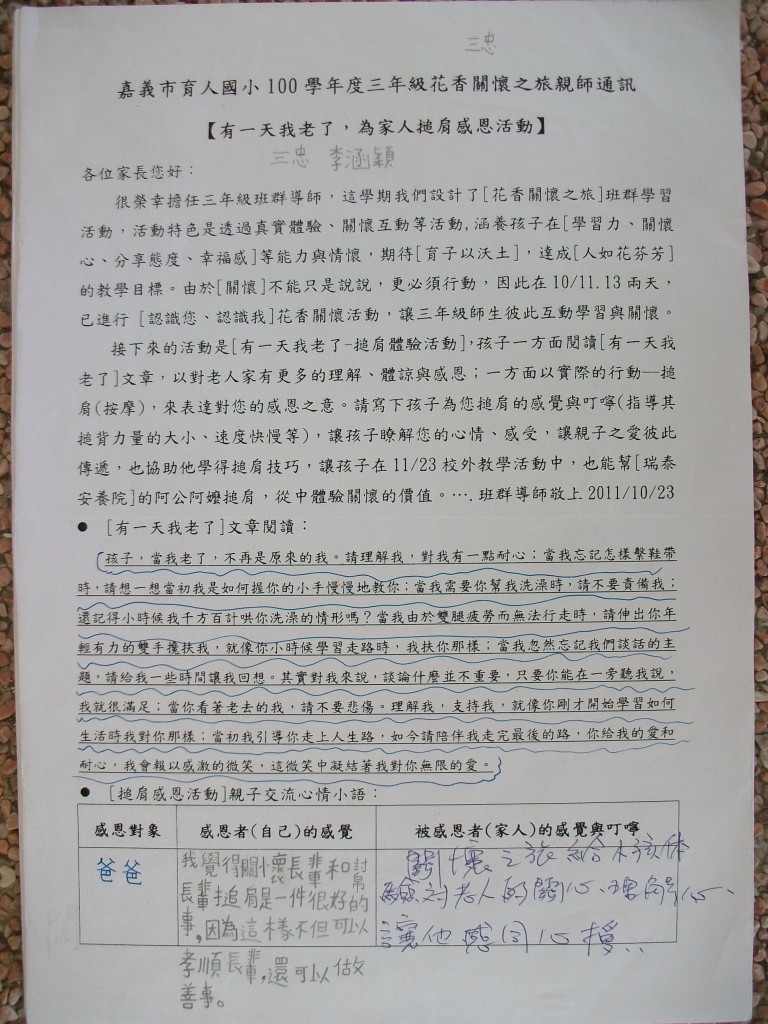 三忠
嘉義市育人國小100學年度三年級花香關懷之旅親師通訊
【有一天我老了，為家人搥肩感恩活動】
三忠 李涵穎
各位家長您好：
很榮幸擔任三年級班群導師，這學期我們設計了[花香關懷之旅]班群學習
活動，活動特色是透過真實體驗、關懷互動等活動,涵養孩子在[學習力、關懷
心、分享態度、幸福感]等能力與情懷，期待[育子以沃土]，達成[人如花芬芳]
的教學目標。由於[關懷]不能只是說說，更必須行動，因此在10/11.13兩天，
已進行 [認識您、認識我]花香關懷活動，讓三年級師生彼此互動學習與關懷。
接下來的活動是[有一天我老了-搥肩體驗活動],孩子一方面閱讀[有一天我
老了]文章，以對老人家有更多的理解、體諒與感恩；一方面以實際的行動─搥
肩(按摩)，來表達對您的感恩之意。請寫下孩子為您搥肩的感覺與叮嚀(指導其
搥背力量的大小、速度快慢等)，讓孩子瞭解您的心情、感受，讓親子之愛彼此
傳遞，也協助他學得搥肩技巧，讓孩子在11/23校外教學活動中，也能幫[瑞泰
安養院]的阿公阿嬤搥肩，從中體驗關懷的價值。….班群導師敬上2011/10/23
● [有一天我老了]文章閱讀：
孩子，當我老了，不再是原來的我。請理解我，對我有一點耐心；當我忘記怎樣繫鞋帶
時，請想一想當初我是如何握你的小手慢慢地教你；當我需要你幫我洗澡時，請不要責備我；
還記得小時候我千方百計哄你洗澡的情形嗎？當我由於雙腿疲勞而無法行走時，請伸出你年
輕有力的雙手攙扶我，就像你小時候學習走路時，我扶你那樣；當我忽然忘記我們談話的主
題，請給我一些時間讓我回想。其實對我來說，談論什麼並不重要，只要你能在一旁聽我說，
我就很滿足；當你看著老去的我，請不要悲傷。理解我，支持我，就像你剛才開始學習如何
生活時我對你那樣；當初我引導你走上人生路，如今請陪伴我走完最後的路，你給我的愛和
耐心，我會報以感激的微笑，這微笑中凝結著我對你無限的愛。
● [搥肩感恩活動]親子交流心情小語：
感恩對象 感恩者(自己)的感覺 被感恩者(家人)的感覺與叮嚀
爸爸
我覺得關懷長輩和幫
長輩搥肩是一件很好的
事,因為這樣不但可以
孝順長輩,還可以做
善事。
關懷之旅給小孩体
驗對老人的關心、
讓他感同心授..